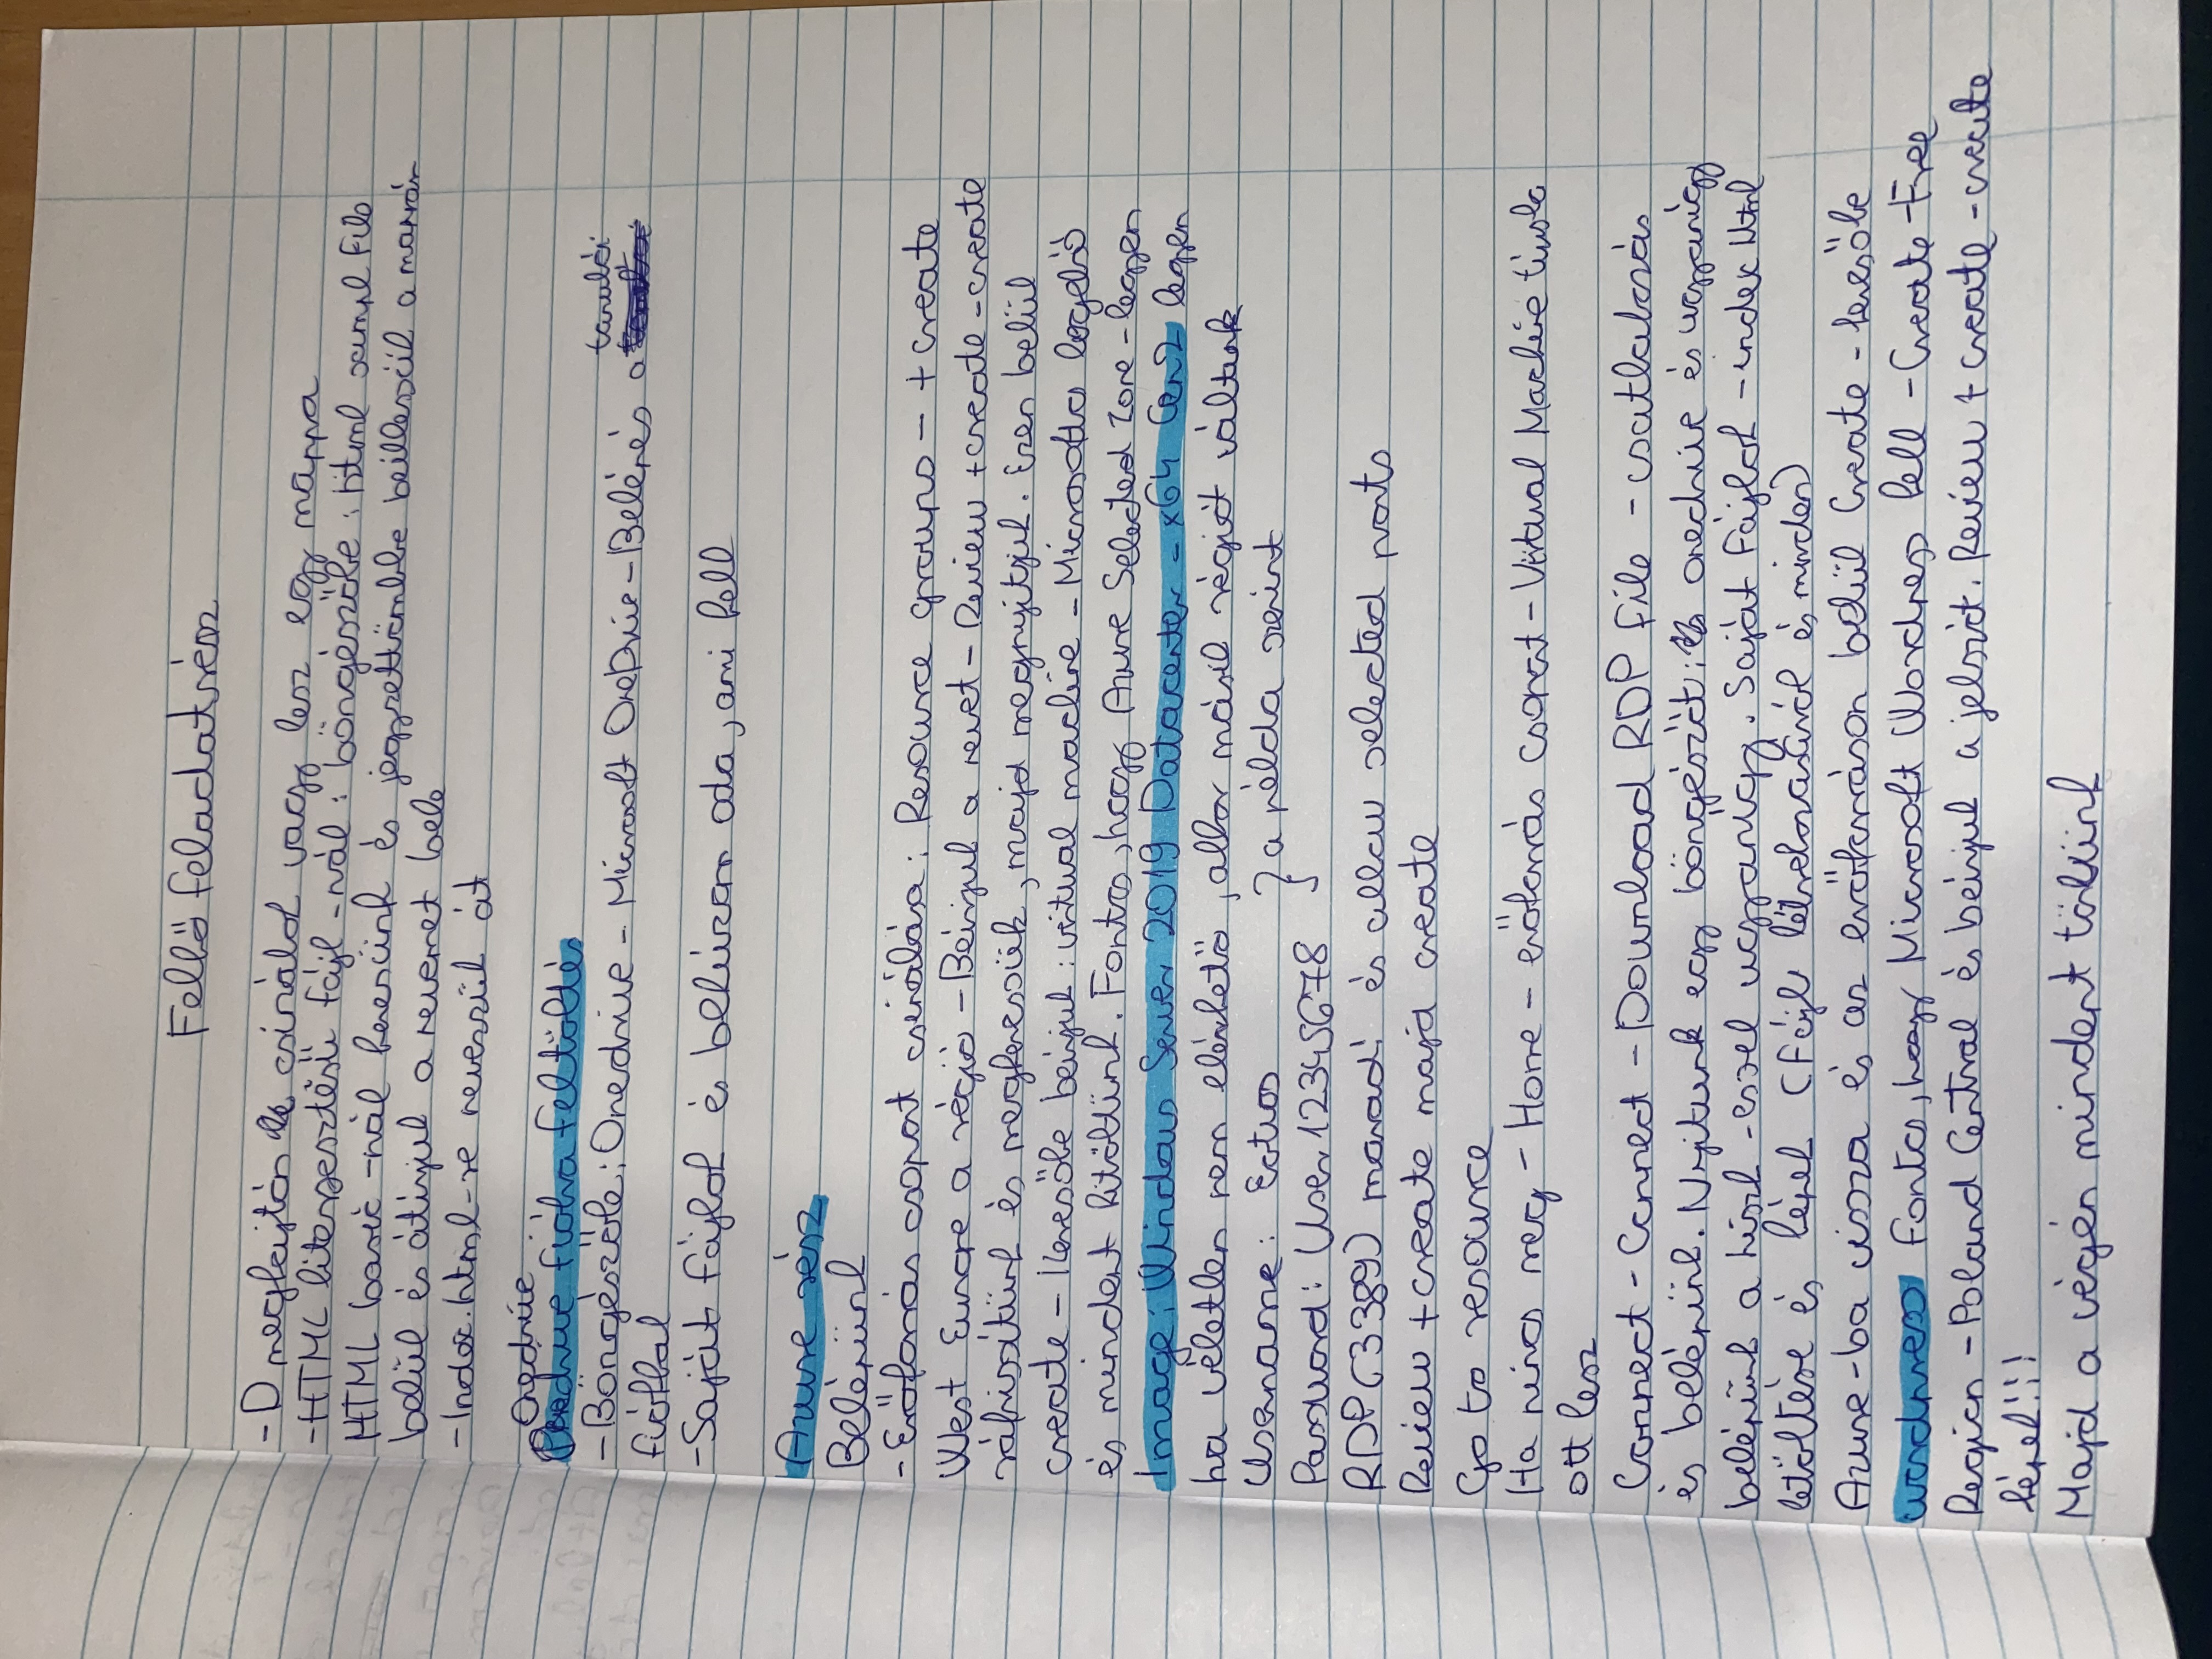 Felhő feladatrész
- D meghajtón csinálok vagy lesz egy mappa
- HTML kiterjesztésű fájl -nál: böngészőbe: html sampl File
HTML basic -nál keresünk és jegyzettömbbe beillesszük a mappán
belül és átírjuk a nevemet bele
- Index.html-re nevezzük át
Onedrive
fiókra feltöltés
- Böngészőbe: Onedrive - Microsoft OneDrive - Belépés a tanulói
fiókkal
- Saját fájlok és behúzom oda, ami kell
Azure rész
Belépünk
- Erőforrás csoport csinálása: Resource groups - + create
West Europe a régió - Beírjuk a nevet - Review + create - create
ráfrissítünk és megkeressük, majd megnyitjuk. Ezen belül
create - Keresőbe beírjuk: virtual machine - Microsoftos legelső
és mindent kitöltünk. Fontos, hogy Azure Selected Zone - legyen
Image: Windows Server 2019 Datacenter - x64 Gen2 legyen
ha véletlen nem elérhető, akkor másik régiót váltunk
Username: Eotvos } a példa szerint
Password: User12345678
RDP (3389) marad! és allow selected ports
Review + create majd create
Go to resource
Ha nincs meg - Home - erőforrás csoport - Virtual Machine típusba
ott lesz
Connect - Connect - Download RDP file - csatlakozás
és belépünk. Nyitunk egy böngészőt: onedrive és ugyanúgy
belépünk a -essel ugyanúgy. Saját Fájlok - index html
letöltése és képek (Fájl létrehozásáról és minden)
Azure-ba vissza és az erőforráson belül Create - keresőbe
wordpress Fontos, hogy Microsoft Wordpress kell - Create - Free
Region - Poland Central és beírjuk a jelszót. Review + create - create
képek!!!
Majd a végén mindent törlünk